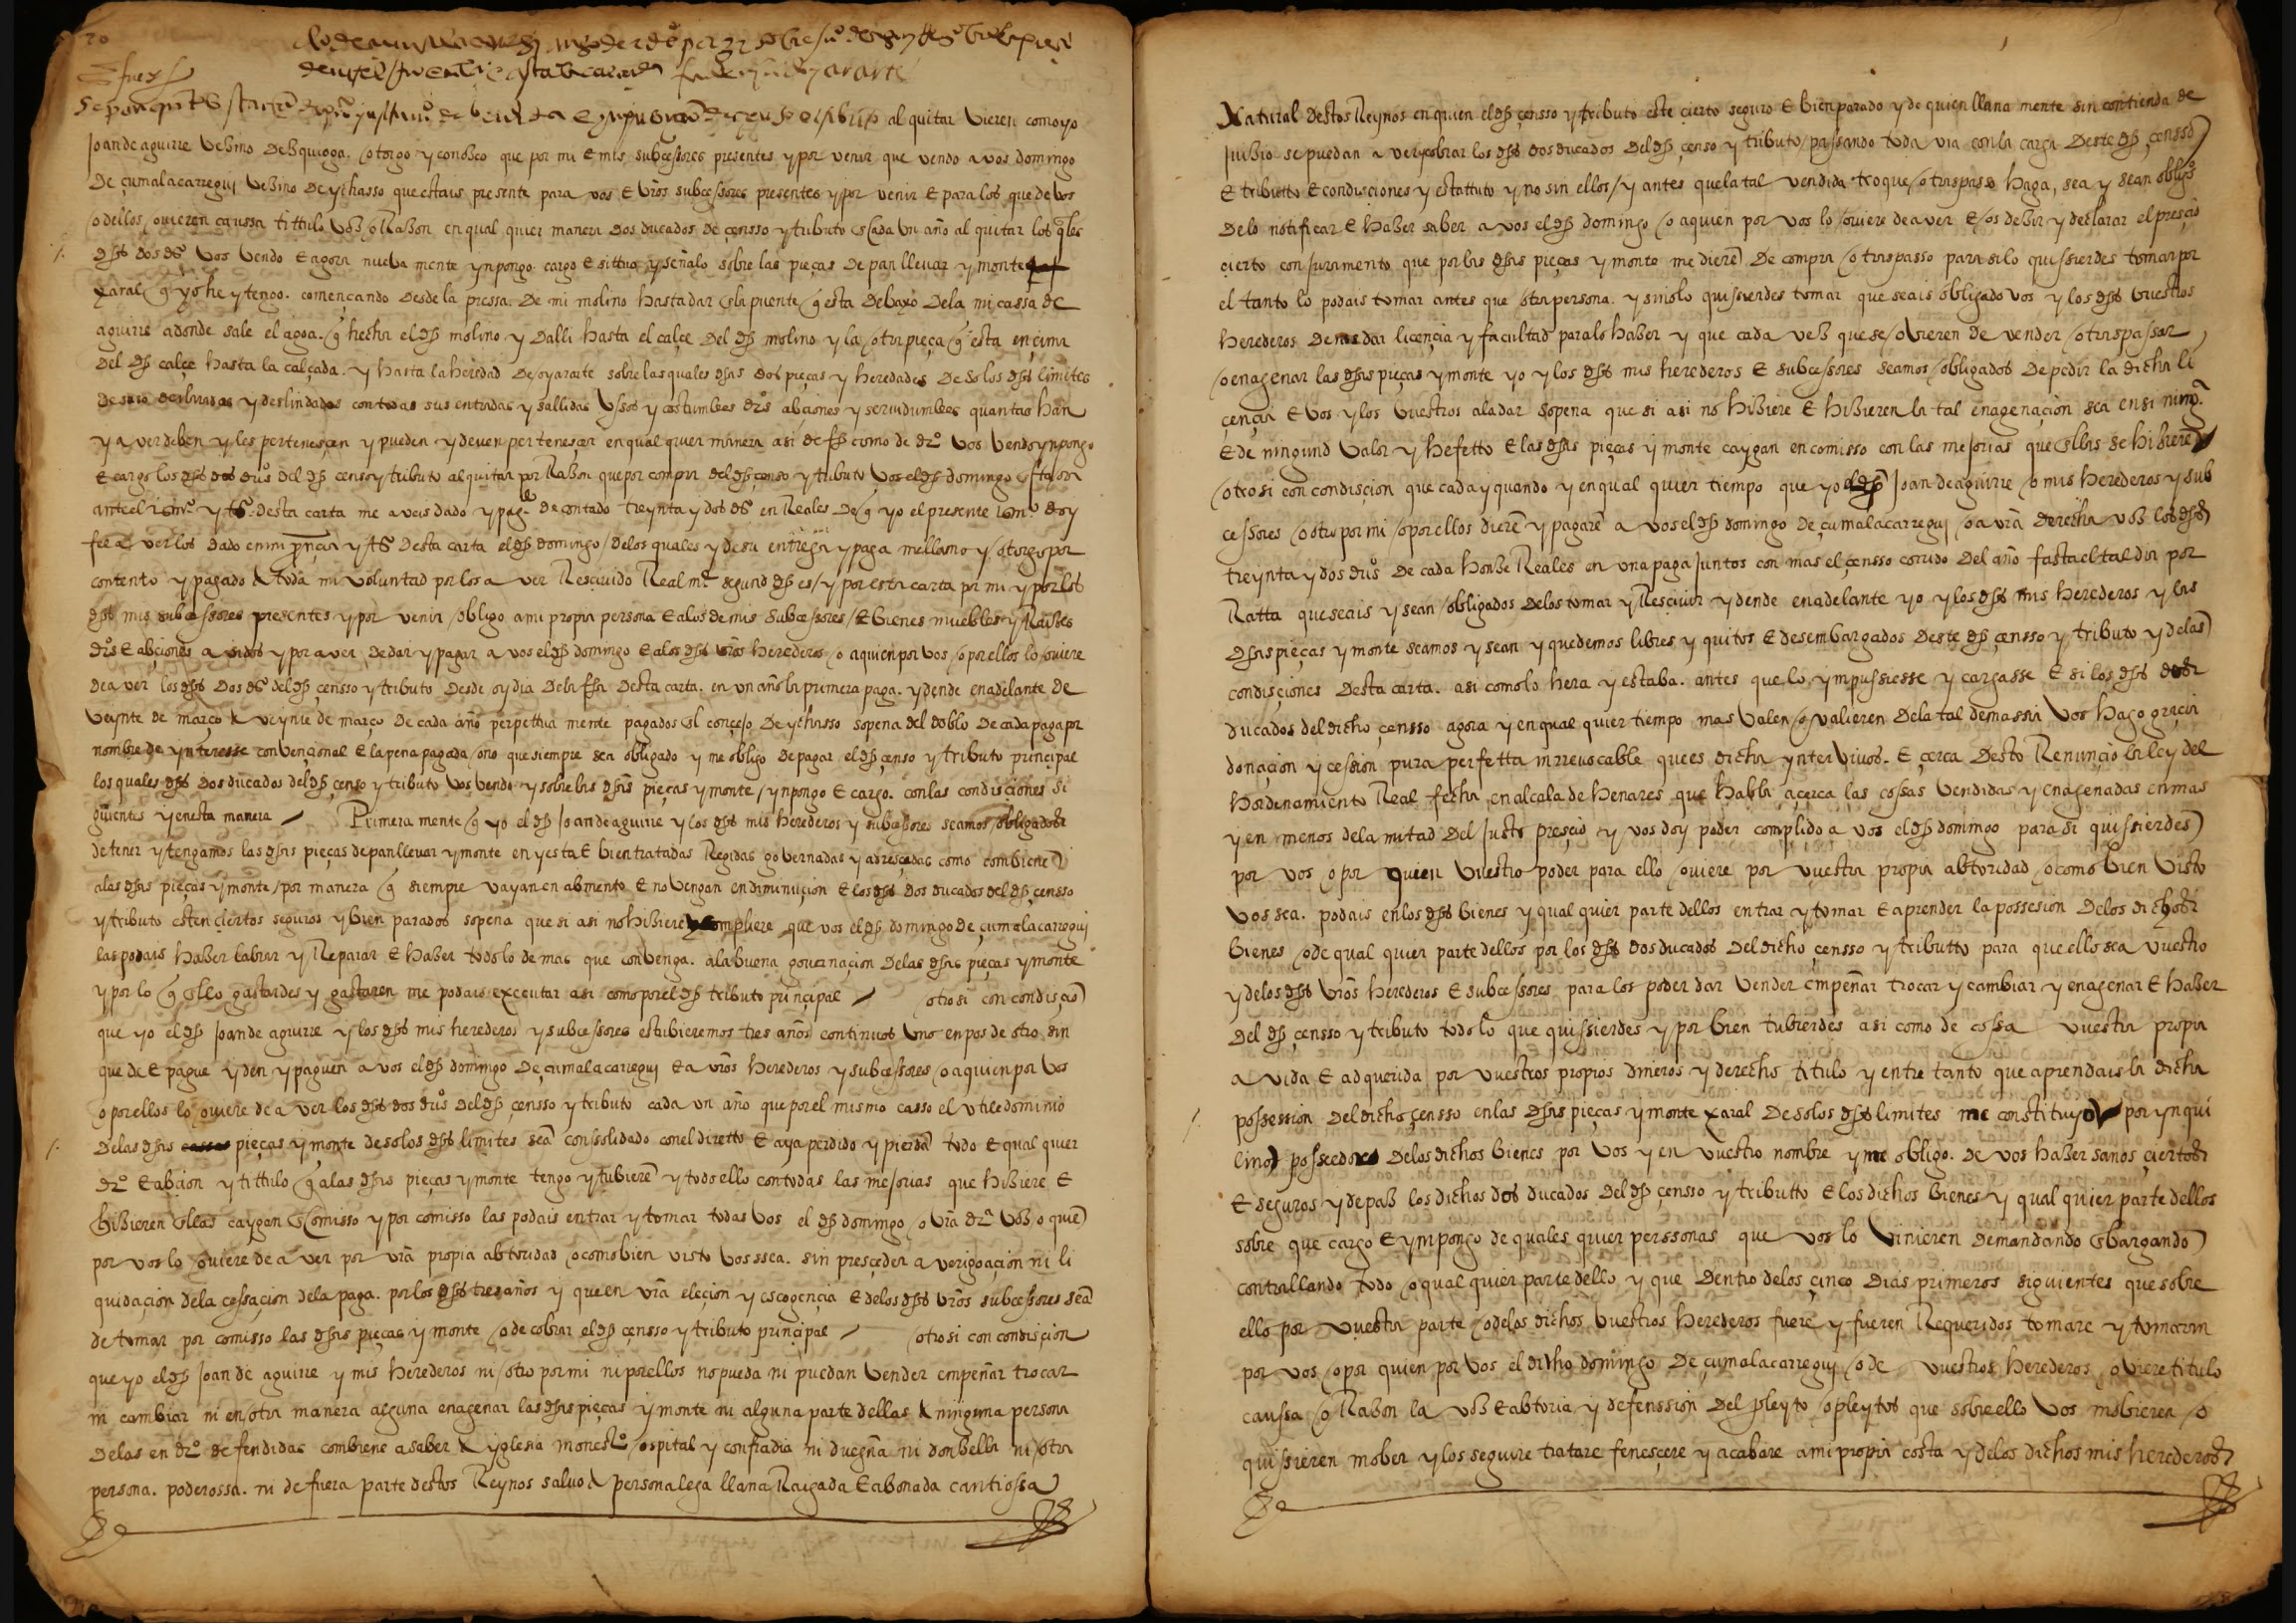 Sepan quantos esta carta de al quitar vieren como yo
Joan de aguirre vezino de Ezquioga. otorgo y conozco que por mi e mis subcessores presentes y por venir que vendo a vos domingo
De çumalacarregui vezino de ychasso que estais presente para vos e vros subcessores presentes y por venir e para los que de vos
o dellos ovieren caussa tittulo voz o Razon en qual quier manera dos ducados de çensso y tributo en cada un año al quitar los qles
dhos dos ds vos vendo e agora nueva mente ynpongo cargo e sittuo y señalo sobre las pieças de pan llevar y monte
xaral q yo he y tengo. començando desde la pressa de mi molino hasta dar en la puente q esta debaxo dela mi cassa de
aguirre adonde sale el agoa q hecha el dho molino y dalli hasta el calçe del dho molino y la otra pieça q esta ençima
del dho calçe hasta la calçada. y hasta la heredad de oyararte sobre las quales dhas dos pieças y heredades de so los dhos limites
de suso declaradas y deslindadas con todas sus entradas y sallidas ussos y costumbres dros abçiones y servidumbres quantas han
y aver deben y les pertenesçen y pueden y deven pertenesçer en qual quier manera asi de fho como de dro vos vendo ynpongo
e cargo los dhos dos dus del dho censo y tributo al quitar por Razon que por compra del dho çenso y tributo vos el dho domingo
ante el y ts desta carta me aveis dado y pagdo de contado treynta y dos ds en Reales de q yo el presente doy
fee aver los dado en mi prnçia y ts desta carta el dho domingo de los quales y de su entrega y paga me llamo y otorgo por
contento y pagado a toda mi voluntad por los aver Resçivido Real mte segund dho es y por esta carta por mi y por los
dhos mis subcessores presentes y por venir obligo a mi propia persona e a los de mis subcessores e bienes muebles y Raizes
dros e abçiones avidos y por aver de dar y pagar a vos el dho domingo e a los dhos vros herederos o a quien por vos o por ellos lo oviere
de aver los dhos dos ds del dho çensso y tributo desde oy dia dela fha desta carta. en un año la primera paga. y dende en adelante de
veynte de março a veynte de março de cada año perpettua mente pagados en el conçejo de ychasso sopena del doblo de cada paga por
nombre de ynteresse convençional e la pena pagada o no que siempre sea obligado y me obligo de pagar el dho çenso y tributo principal
los quales dhos dos ducados del dho çenso y tributo vos vendo y sobre las dhas pieças y monte ynpongo e cargo. con las condisçiones si
guientes y en esta manera / Primera mente q yo el dho Joan de aguirre y los dhos mis herederos y subcessores seamos obligados
de tener y tengamos las dhas pieças de pan llevar y monte en yesta e bien tratadas Regidas governadas y adresçadas como combiene
a las dhas pieças y monte por manera q siempre vayan en abmento e no vengan en diminuiçion e los dhos dos ducados del dho çensso
y tributo esten çiertos seguros y bien parados sopena que si asi no hiziere y compliere que vos el dho domingo de çumalacarregui
las podais hazer labrar y Reparar e hazer todo lo demas que convenga. a la buena governaçion delas dhas pieças y monte
y por lo q en ello gastardes y gastaren me podais executar asi como por el dho tributo prinçipal / otrosi con condisçion
que yo el dho Joan de aguirre y los dhos mis herederos y subcessores estubieremos tres años continuos uno en pos de otro sin
que de e pague y den y paguen a vos el dho domingo de çumalacarregui e a vros herederos y subcessores o a quien por vos
o por ellos lo oviere de aver los dhos dos dus del dho çensso y tributo cada un año que por el mismo casso el utile dominio
delas dhas pieças y monte de so los dhos limites sea consolidado con el diretto e aya perdido y pierda todo e qual quier
dro e abçion y tittulo q a las dhas pieças y monte tengo y tubiere y todo ello con todas las mejorias que hiziere e
hizieren en ellas caygan en comisso y por comisso las podais entrar y tomar todas vos el dho domingo o vra dra voz o quien
por vos lo oviere de aver por vra propia abtoridad o como bien visto vos ssea. sin presçeder averigoaçion ni li
quidaçion dela cessaçion dela paga. por los dhos tres años y que en vra eleçion y escogençia e delos dhos vros subcessores sea
de tomar por comisso las dhas pieças y monte o de cobrar el dho çensso y tributo prinçipal / otrosi con condisçion
que yo el dho Joan de aguirre y mis herederos ni otro por mi ni por ellos no pueda ni puedan vender empeñar trocar
ni cambiar ni en otra manera alguna enagenar las dhas pieças y monte ni alguna parte dellas a ninguna persona
delas en dro defendidas combiene a saber a yglesia monestro ospital y confradia ni duegña ni donzella ni otra
persona. poderossa. ni de fuera parte destos Reynos salvo a persona lega llana Raigada e abonada cantiossa
Natural destos Reynos en quien el dho çensso y tributo este cierto seguro e bien parado y de quien llana mente sin contienda de
juizio se puedan aver y cobrar los dhos dos ducados del dho çenso y tributo passando toda via con la carga deste dho çensso
e tributto e condisçiones y estattuto y no sin ellos y antes que la tal vendida troque o traspasso haga, sea y sean obligos
de lo notificar e hazer saber a vos el dho domingo o a quien por vos lo oviere de aver e os dezir y declarar el presçio
cierto con juramento que por las dhas pieças y monte me dieren de compra o traspasso para si lo quissierdes tomar por
el tanto lo podais tomar antes que otra persona. y si no lo quissierdes tomar que seais obligado vos y los dhos vuestros
herederos de me dar licençia y facultad para lo hazer y que cada vez que se ovieren de vender o traspassar
o enagenar las dhas pieças y monte yo y los dhos mis herederos e subcessores seamos obligados de pedir la dicha li
çençia e vos y los vuestros a la dar sopena que si asi no hiziere e hizieren la tal enagenaçion sea en si ninga
e de ningund valor y hefetto e las dhas pieças y monte caygan en comisso con las mejorias que en ellas se hizieren
otrosi con condisçion que cada y quando y en qual quier tiempo que yo el dho Joan de aguirre o mis herederos y sub
cessores o otro por mi o por ellos diere y pagare a vos el dho domingo de çumalacarregui o a vra derecha voz los dhos
treynta y dos dus de cada honze Reales en una paga juntos con mas el çensso corrido del año fasta el tal dia por
Ratta que seais y sean obligados delos tomar y Resçivir y dende en adelante yo y los dhos mis herederos y las
dhas pieças y monte seamos y sean y quedemos libres y quitos e desembargados deste dho çensso y tributo y delas
condisçiones desta carta. asi como lo hera y estaba. antes que lo ympussiesse y cargasse e si los dhos dos
ducados del dicho çensso agora y en qual quier tiempo mas valen o valieren dela tal demassia vos hago graçia
donaçion y cession pura perfetta inrrevocable que es dicha ynter vivos. e çerca desto Renunçio la ley del
hordenamiento Real fecha en alcala de henares que habla açerca las cossas vendidas y enagenadas en mas
y en menos dela mitad del justo presçio y vos doy poder complido a vos el dho domingo para si quissierdes
por vos o por quien vuestro poder para ello oviere por vuestra propia abtoridad o como bien visto
vos sea. podais en los dhos bienes y qual quier parte dellos entrar y tomar e aprender la possesion delos dichos
bienes o de qual quier parte dellos por los dhos dos ducados del dicho çensso y tributto para que ello sea vuestro
y delos dhos vros herederos e subcessores para los poder dar vender empeñar trocar y cambiar y enagenar e hazer
del dho çensso y tributo todo lo que quissierdes y por bien tubierdes asi como de cossa vuestra propia
avida e adquerida por vuestros propios dineros y derecho titulo y entre tanto que aprendais la dicha
possession del dicho çensso en las dhas pieças y monte xaral de so los dhos limites me constituyo por ynqui
lino possedor delos dichos bienes por vos y en vuestro nombre y me obligo. de vos hazer sanos çiertos
e seguros y de paz los dichos dos ducados del dho çensso y tributto e los dichos bienes y qual quier parte dellos
sobre que cargo e ympongo de quales quier perssonas que vos lo vinieren demandando enbargando
contrallando todo o qual quier parte dello y que dentro delos çinco dias primeros siguientes que sobre
ello por vuestra parte o delos dichos vuestros herederos fuere y fueren Requeridos tomare y tomaran
por vos o por quien por vos el dicho domingo de çumalacarregui o de vuestros herederos oviere titulo
caussa o Razon la voz e abtoria y defenssion del pleyto o pleytos que sobre ello vos mobieren o
quissieren mober y los seguire tratare fenesçere y acabare a mi propia costa y delos dichos mis herederos